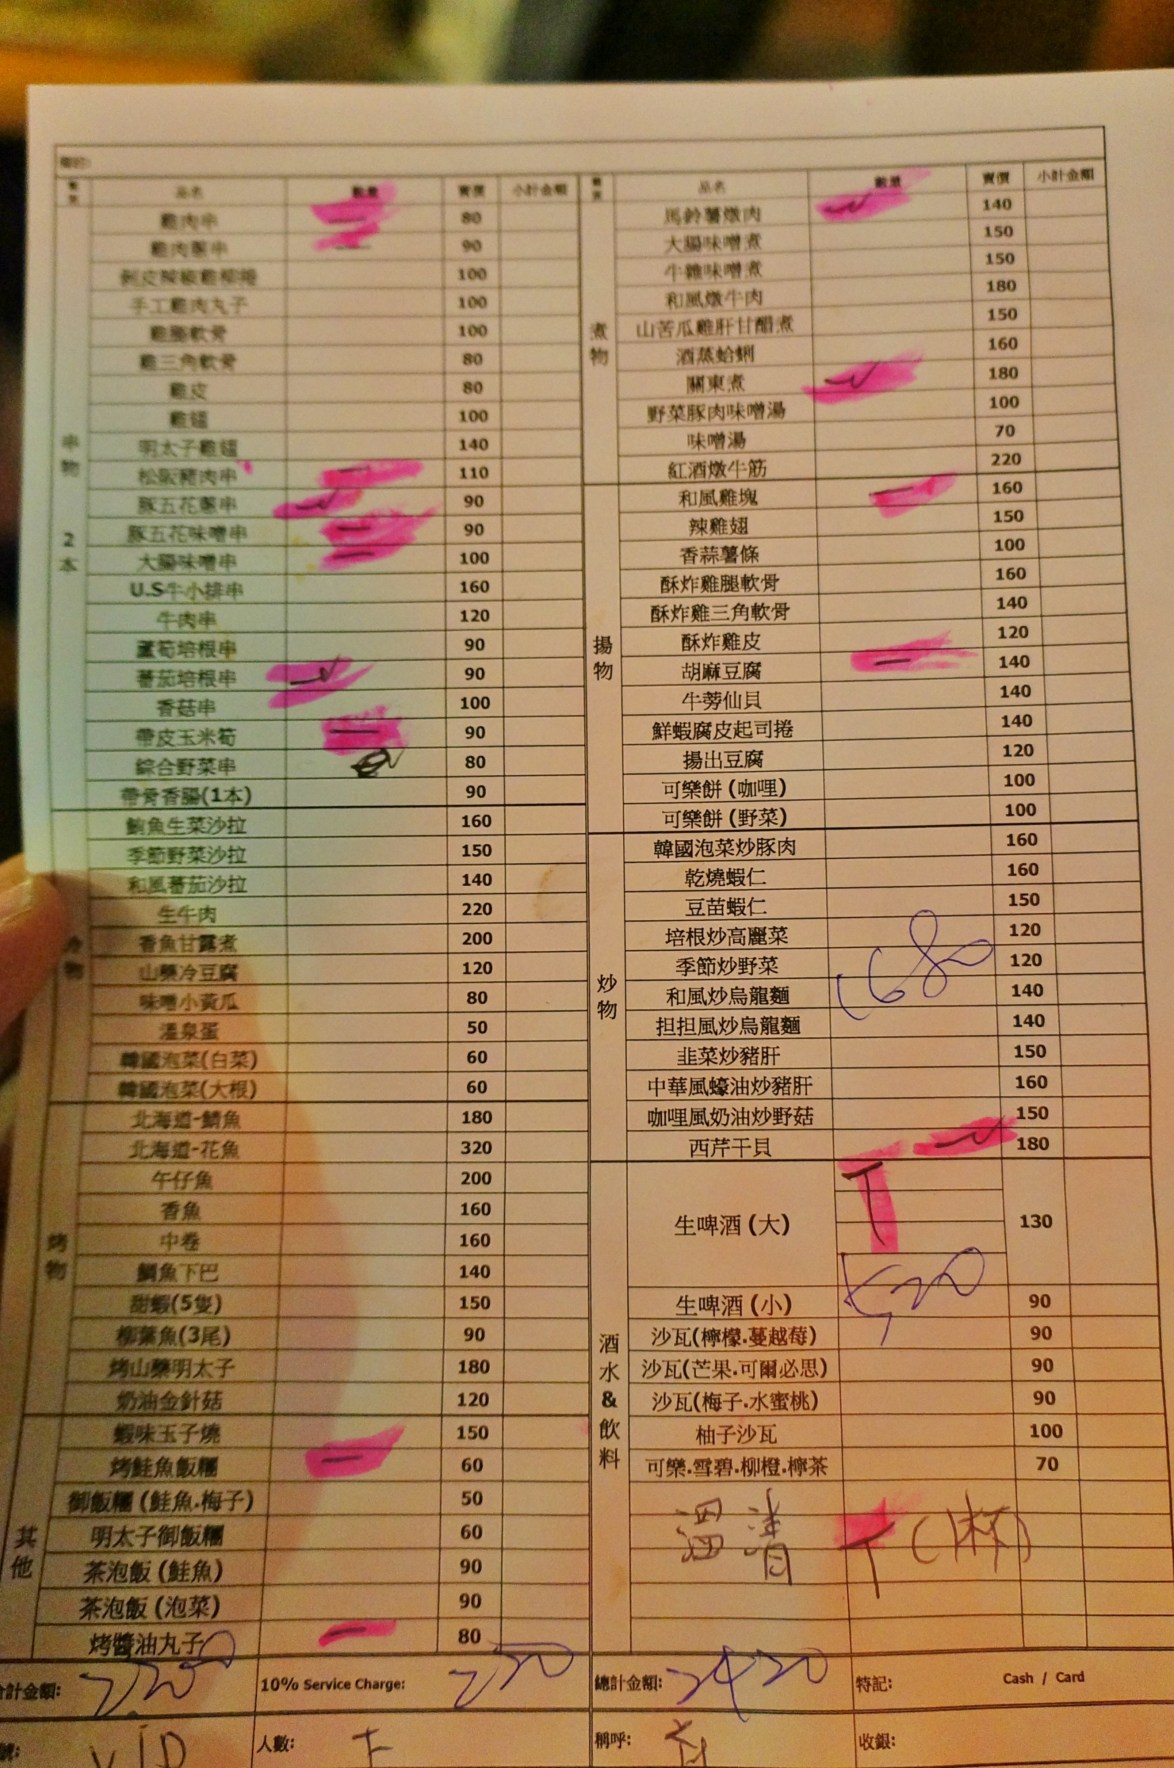 品名 數量 賣價 小計金額
雞肉串 80
雞肉蔥串 90
剝皮辣椒雞柳捲 100
手工雞肉丸子 100
雞膝軟骨 100
雞三角軟骨 80
雞皮 80
雞翅 100
明太子雞翅 140
松阪豬肉串 110
豚五花蔥串 90
豚五花味噌串 90
大腸味噌串 100
U.S牛小排串 160
牛肉串 120
蘆筍培根串 90
蕃茄培根串 90
香菇串 100
帶皮玉米筍 90
綜合野菜串 80
帶骨香腸(1本) 90
串物 2本
鮪魚生菜沙拉 160
季節野菜沙拉 150
和風蕃茄沙拉 140
生牛肉 220
香魚甘露煮 200
山藥冷豆腐 120
味噌小黃瓜 80
溫泉蛋 50
韓國泡菜(白菜) 60
韓國泡菜(大根) 60
物
北海道-鯖魚 180
北海道-花魚 320
午仔魚 200
香魚 160
中卷 160
鯛魚下巴 140
甜蝦(5隻) 150
柳葉魚(3尾) 90
烤山藥明太子 180
奶油金針菇 120
烤物
蝦味玉子燒 150
烤鮭魚飯糰 60
御飯糰(鮭魚.梅子) 50
明太子御飯糰 60
茶泡飯(鮭魚) 90
茶泡飯(泡菜) 90
烤醬油丸子 80
其他
品名 數量 賣價 小計金額
馬鈴薯燉肉 140
大腸味噌煮 150
牛雜味噌煮 150
和風燉牛肉 180
山苦瓜雞肝甘醋煮 150
酒蒸蛤蜊 160
關東煮 180
野菜豚肉味噌湯 100
味噌湯 70
紅酒燉牛筋 220
煮物
和風雞塊 160
辣雞翅 150
香蒜薯條 100
酥炸雞腿軟骨 160
酥炸雞三角軟骨 140
酥炸雞皮 120
胡麻豆腐 140
牛蒡仙貝 140
鮮蝦腐皮起司捲 140
揚出豆腐 120
可樂餅(咖哩) 100
可樂餅(野菜) 100
揚物
韓國泡菜炒豚肉 160
乾燒蝦仁 160
豆苗蝦仁 150
培根炒高麗菜 120
季節炒野菜 120
和風炒烏龍麵 140
担担風炒烏龍麵 140
韭菜炒豬肝 150
中華風蠔油炒豬肝 160
咖哩風奶油炒野菇 150
西芹干貝 180
炒物
1680
生啤酒(大) 130
520
生啤酒(小) 90
沙瓦(檸檬.蔓越莓) 90
沙瓦(芒果.可爾必思) 90
沙瓦(梅子.水蜜桃) 90
柚子沙瓦 100
可樂.雪碧.柳橙.檸茶 70
溫清 (1杯)
酒水&飲料
計金額: 2200 10% Service Charge: 220 總計金額: 2420 特記: Cash / Card
號: VIP 人數: 稱呼: 收銀: